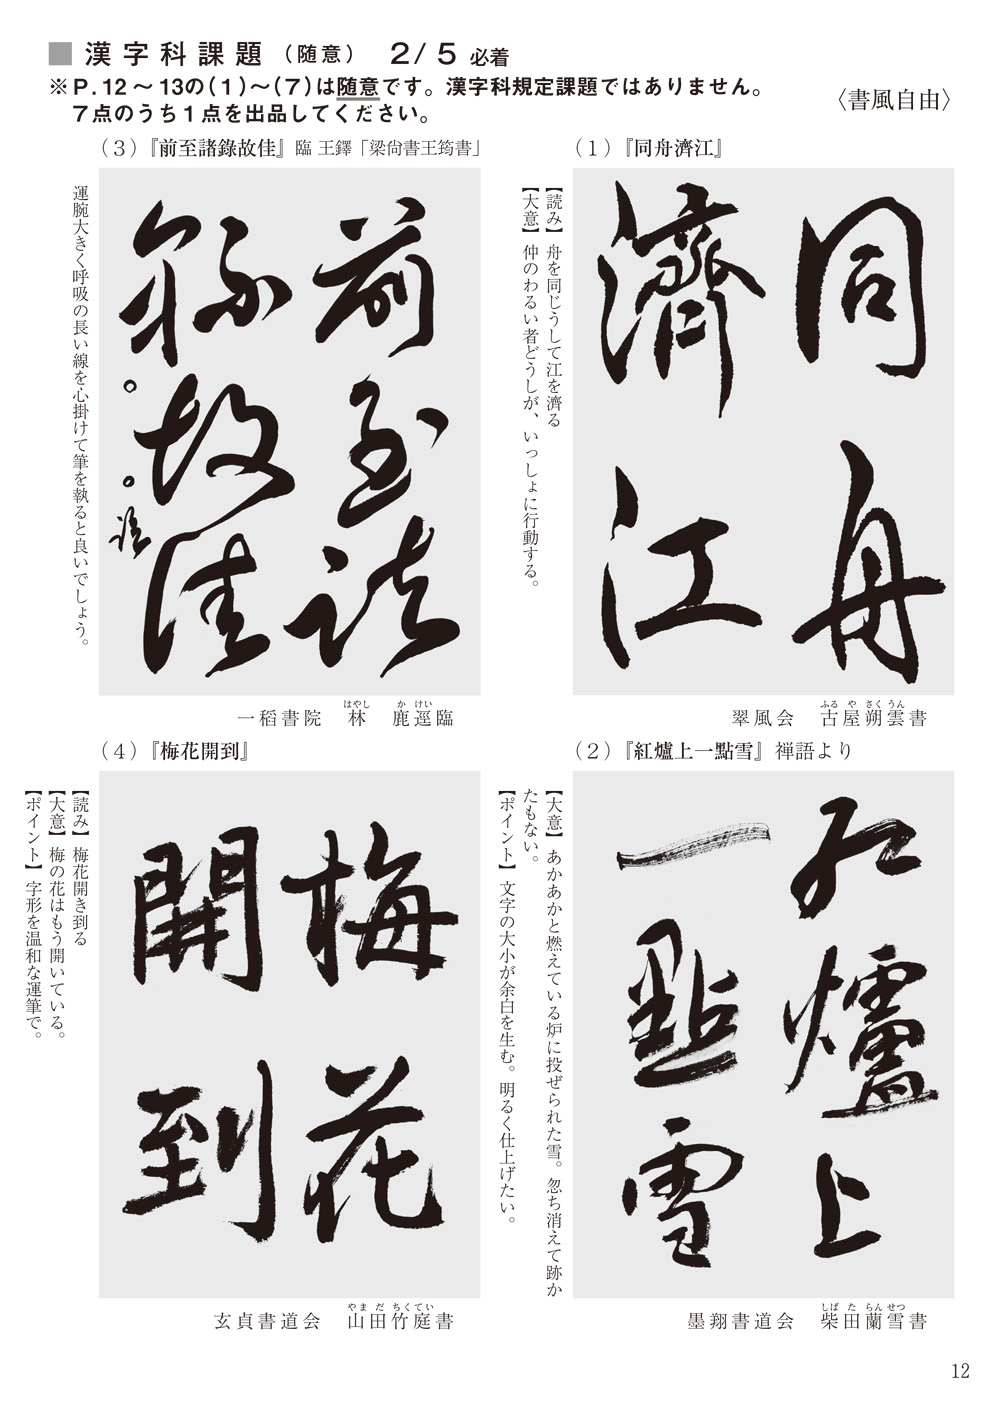 ■漢字科課題（随意） 2/5 必着
※P.12～13の（1）～（7）は随意です。漢字科規定課題ではありません。
7点のうち1点を出品してください。
〈書風自由〉
（1）『同舟濟江』
同舟
濟江
【読み】舟を同じうして江を濟る
【大意】仲のわるい者どうしが、いっしょに行動する。
翠風会 古屋朔雲書
ふるやさくうん
（2）『紅爐上一點雪』禅語より
紅爐上
一點雪
【大意】あかあかと燃えている炉に投ぜられた雪。忽ち消えて跡か
たもない。
【ポイント】文字の大小が余白を生む。明るく仕上げたい。
墨翔書道会 柴田蘭雪書
しばたらんせつ
（3）『前至諸錄故佳』臨 王鐸「梁尙書王筠書」
前至諸
錄故佳
運腕大きく呼吸の長い線を心掛けて筆を執ると良いでしょう。
一稻書院 林 鹿逕臨
はやし かけい
（4）『梅花開到』
梅花
開到
【読み】梅花開き到る
【大意】梅の花はもう開いている。
【ポイント】字形を温和な運筆で。
玄貞書道会 山田竹庭書
やまだちくてい
12